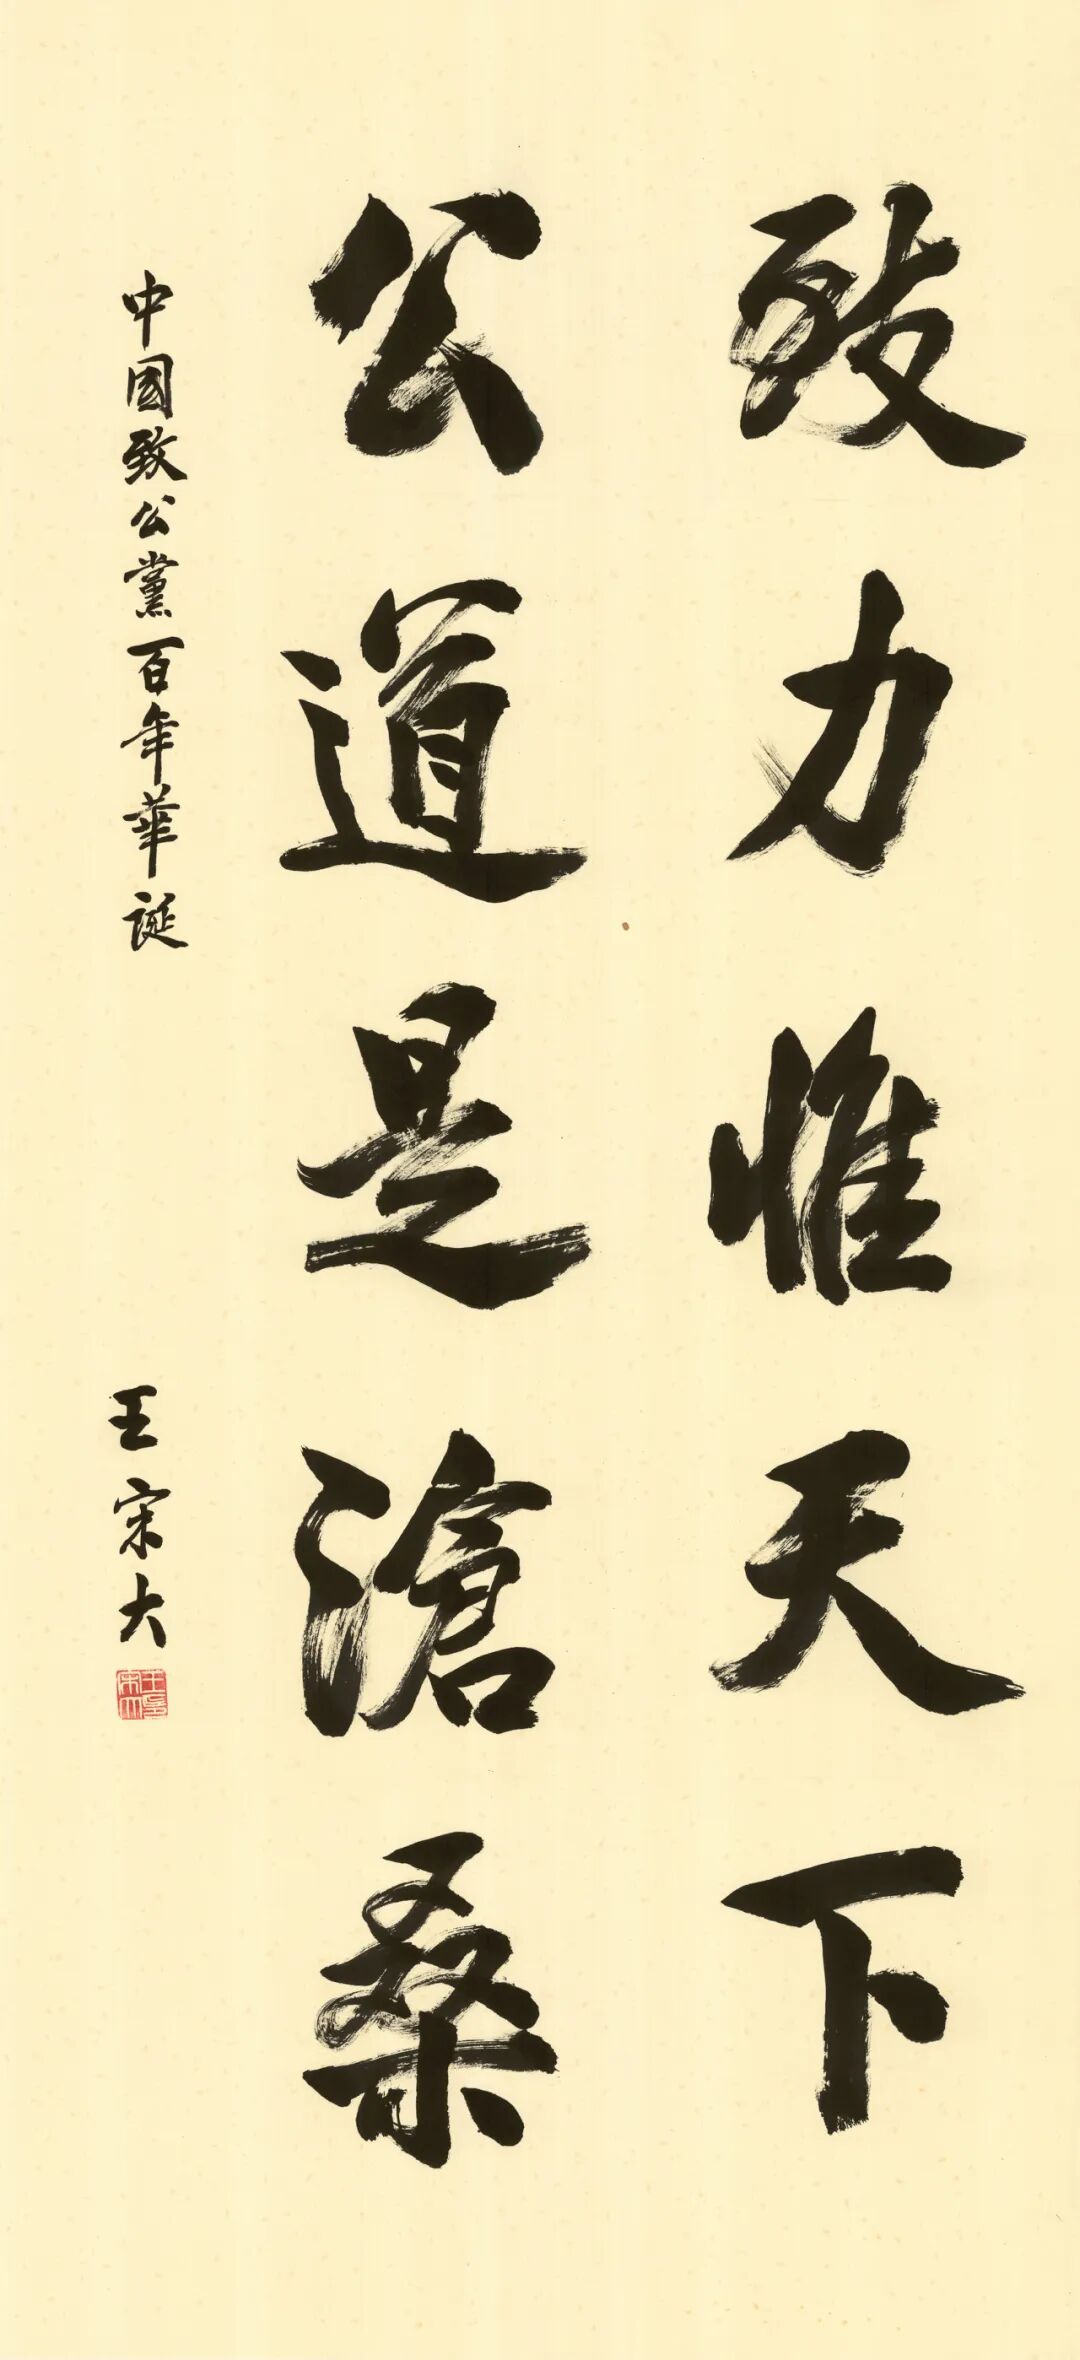 致力惟天下
公道是滄桑
中國致公黨百年華誕
王宋大